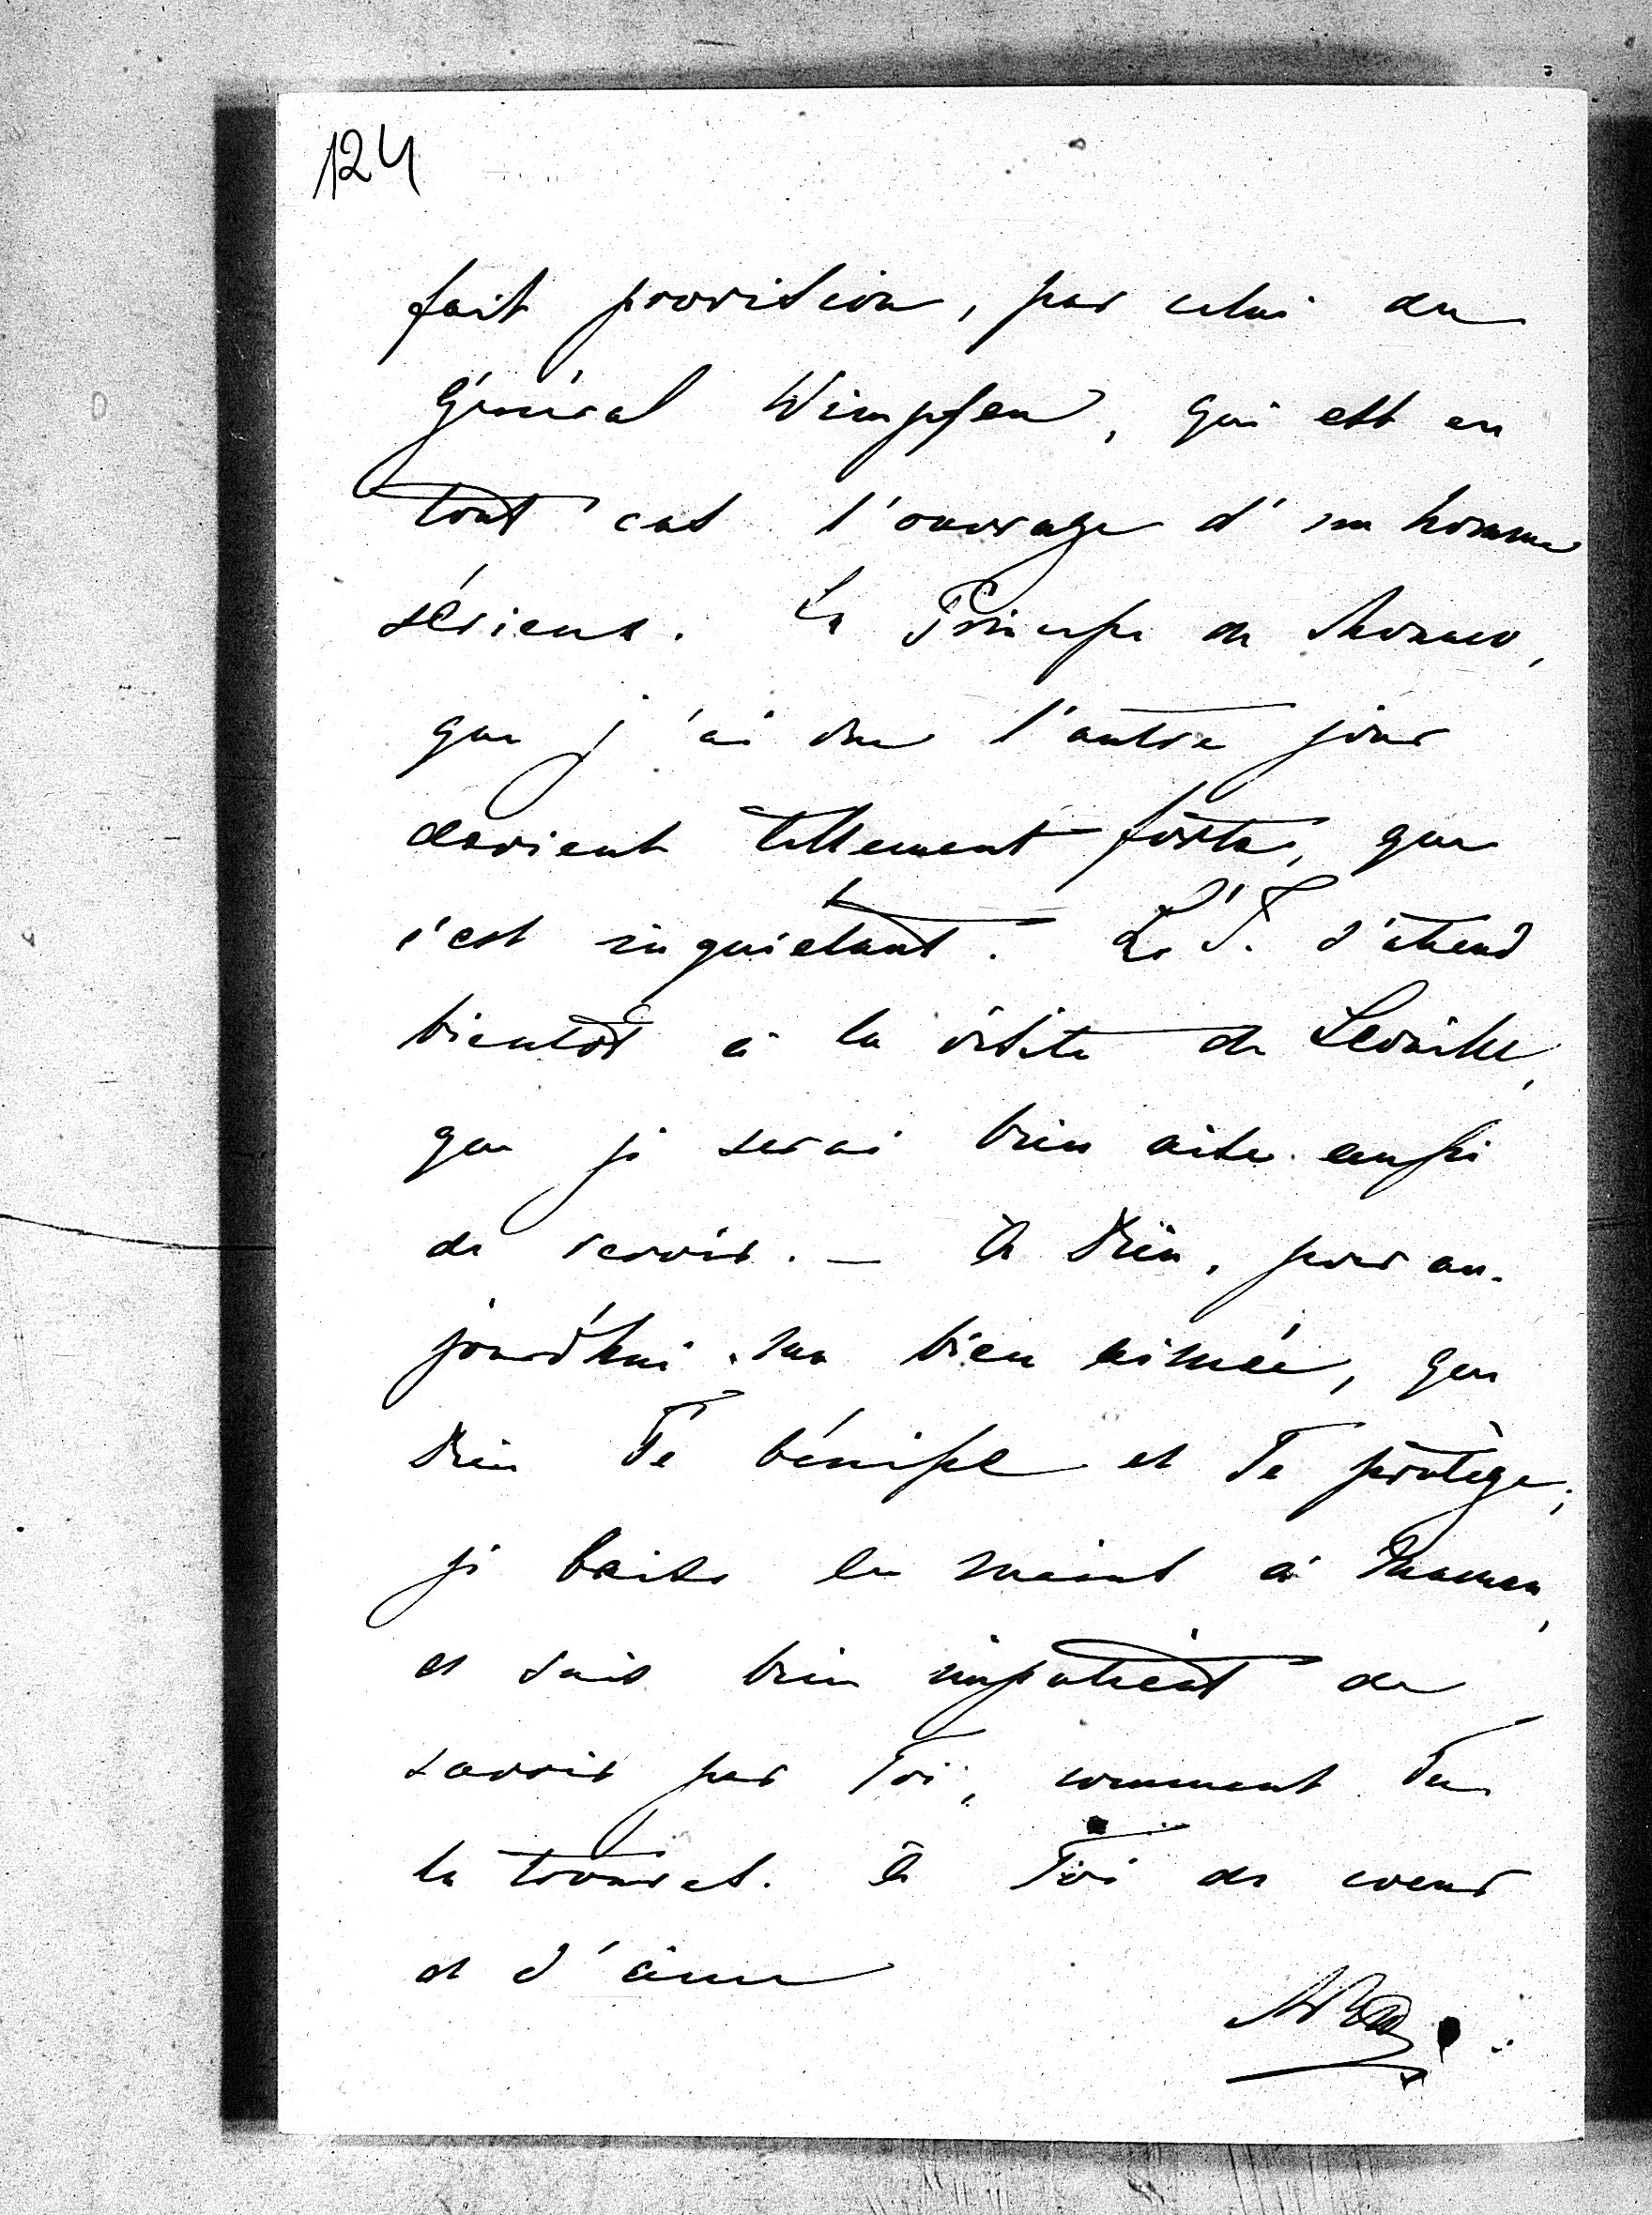 124
fait provision, par celui du
Général Wimpffen, qui est en
tout cas l'ouvrage d'un homme
sérieux. La Princesse de Monaco,
que j'ai vue l'autre jour
devient tellement forte, que
c'est inquiétant. L. F. s'attend
bientôt à la visite de
que je serai bien aise aussi
de revoir. — A Dieu, pour au-
jourd'hui ma bien aimée, que
Dieu Te bénisse et Te protège;
je baise les mains à Maman,
et suis bien impatient de
savoir par Toi, comment Tu
la trouves. à Toi de coeur
et d'âme